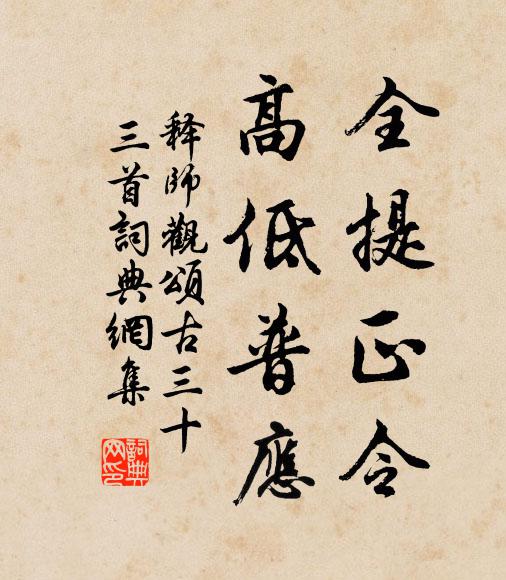 全提正令
高低普應
释師觀頌古三十
三首詞典網集
詞典网印